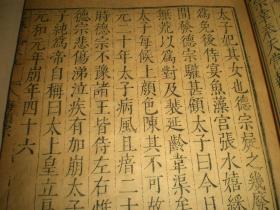 太子妃其女也德宗疑之幾廢
為免後侍宴魚藻宮張水嬉綵
間發德宗驩甚顧太子曰今日
無荒以為對及裴延齡韋渠牟
太子每候上顏色陳其不可故
二十年太子病風且瘖二十
時德宗不豫諸王皆侍左右惟
德宗悲傷涕泣疾有加崩太子
子純為帝自稱曰太上皇立長
元和元年崩年四十六